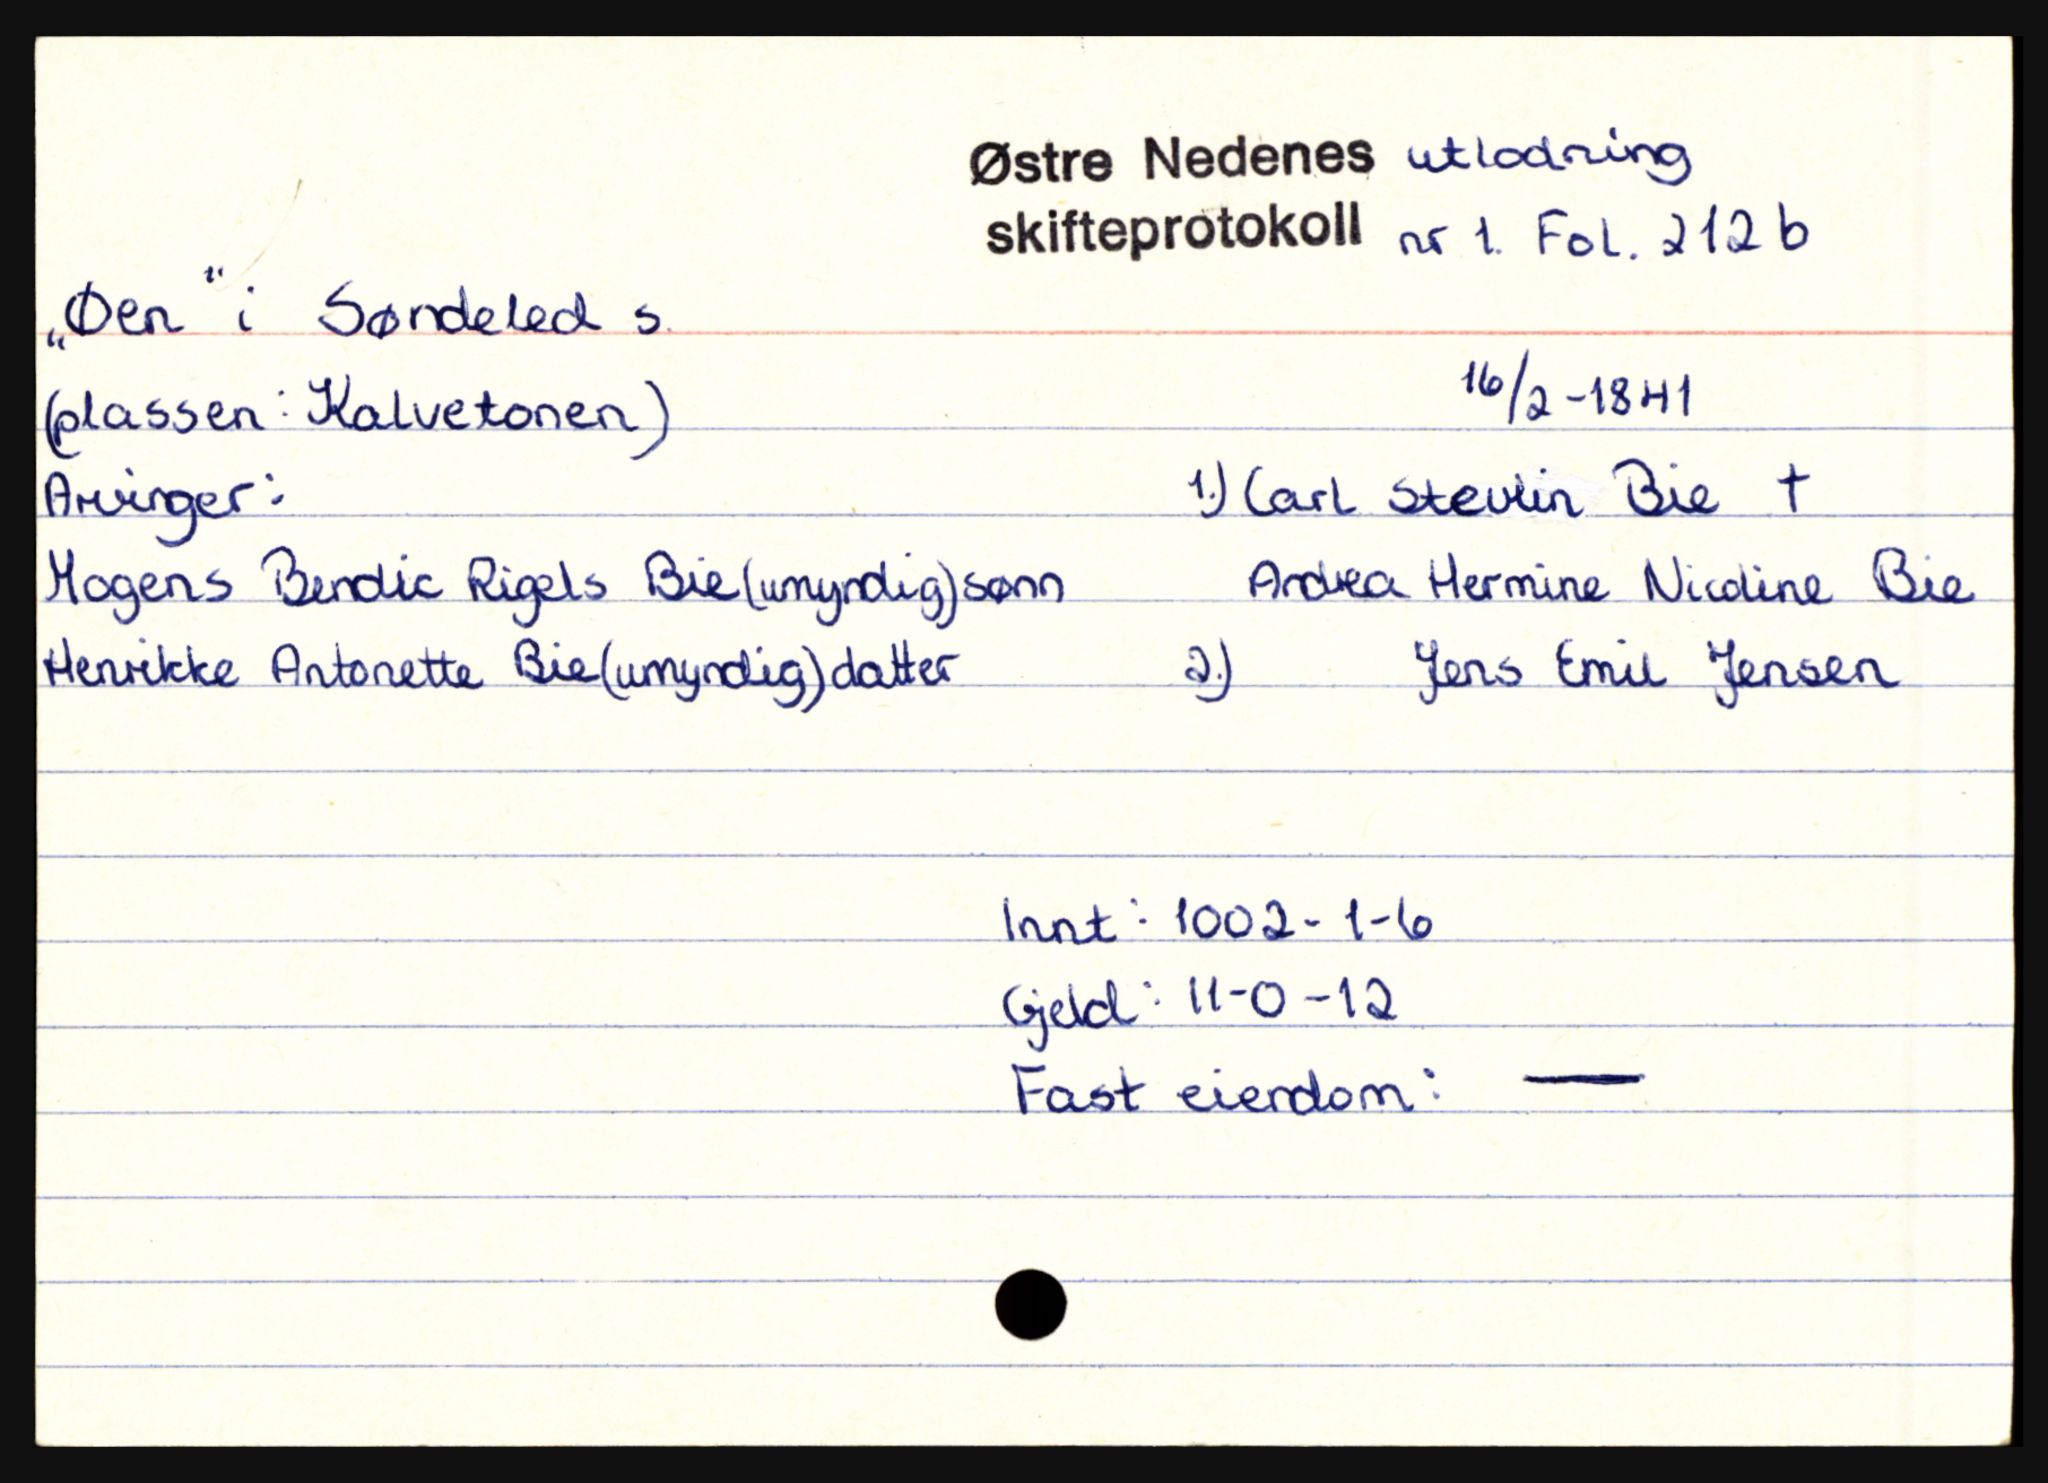 Østre Nedenes utlodning
skifteprotokoll nr 1. Fol. 212 b
„Øen" i Søndeled s.
(plassen: Kalvetonen)
16/2-1841
Arvinger:
1.) Carl Stevlin Bie †
Mogens Bendic Rigels Bie (umyndig) sønn
Andrea Hermine Nicoline Bie
Henrikke Antonette Bie (umyndig) datter
2.) Jens Emil Jensen
Innt: 1002-1-6
Gjeld: 11-0-12
Fast eiendom: —